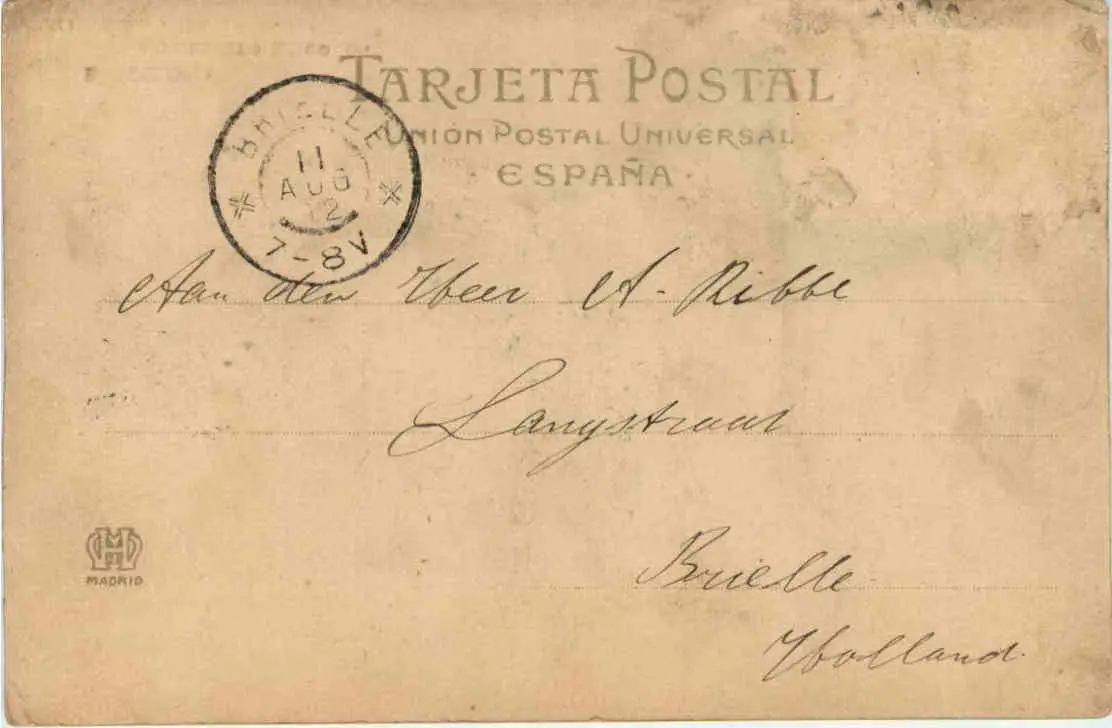 TARJETA POSTAL
UNIÓN POSTAL UNIVERSAL
· ESPAÑA ·
BRIELLE
11
AUG
2
7-8V
Aan den Heer A. Ribbe
Langstraat
Brielle
Holland.
MADRID